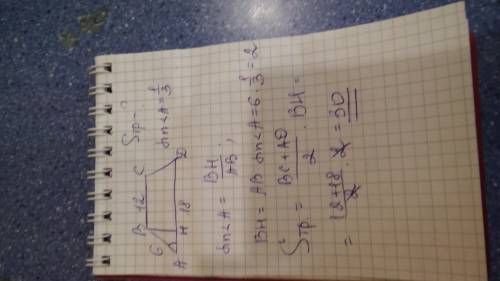 B 12 C
6
A H 18 D
Sтр - ?
sin<A = 1/3
sin<A = BH/AB,
BH = AB sin<A = 6 · 1/3 = 2
Sтр. = (BC + AD)/2 · BH =
= (12+18)/2 · 2 = 30